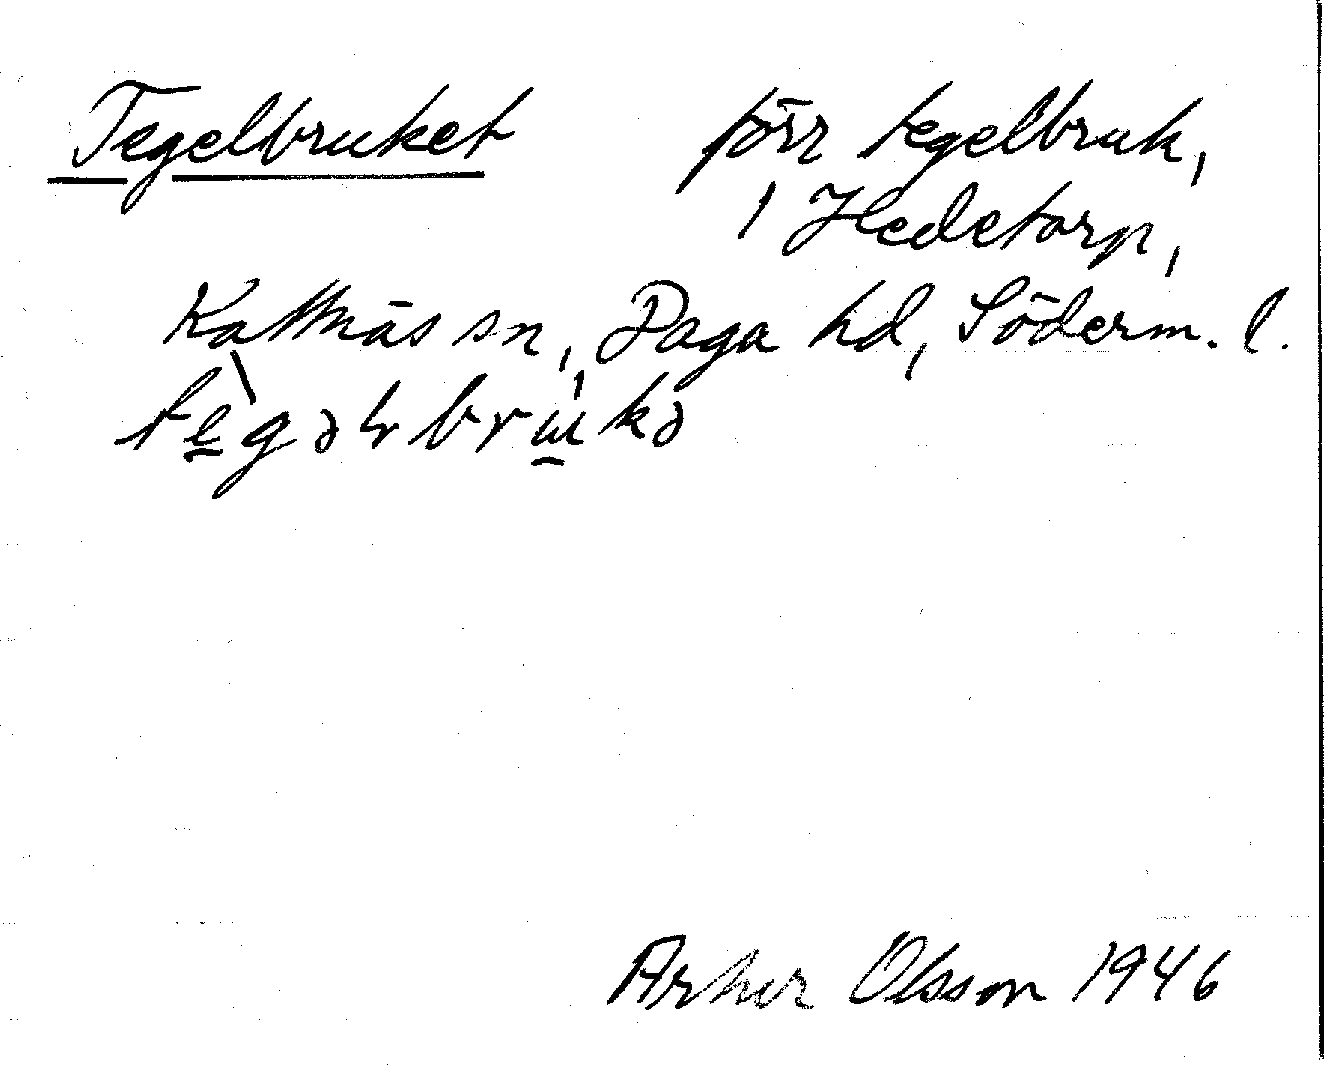 Tegelbruket förr tegelbruk,
i Hedetorp,
Kattnäs sn, Daga hd, Söderm. l.
Arthur Olsson 1946